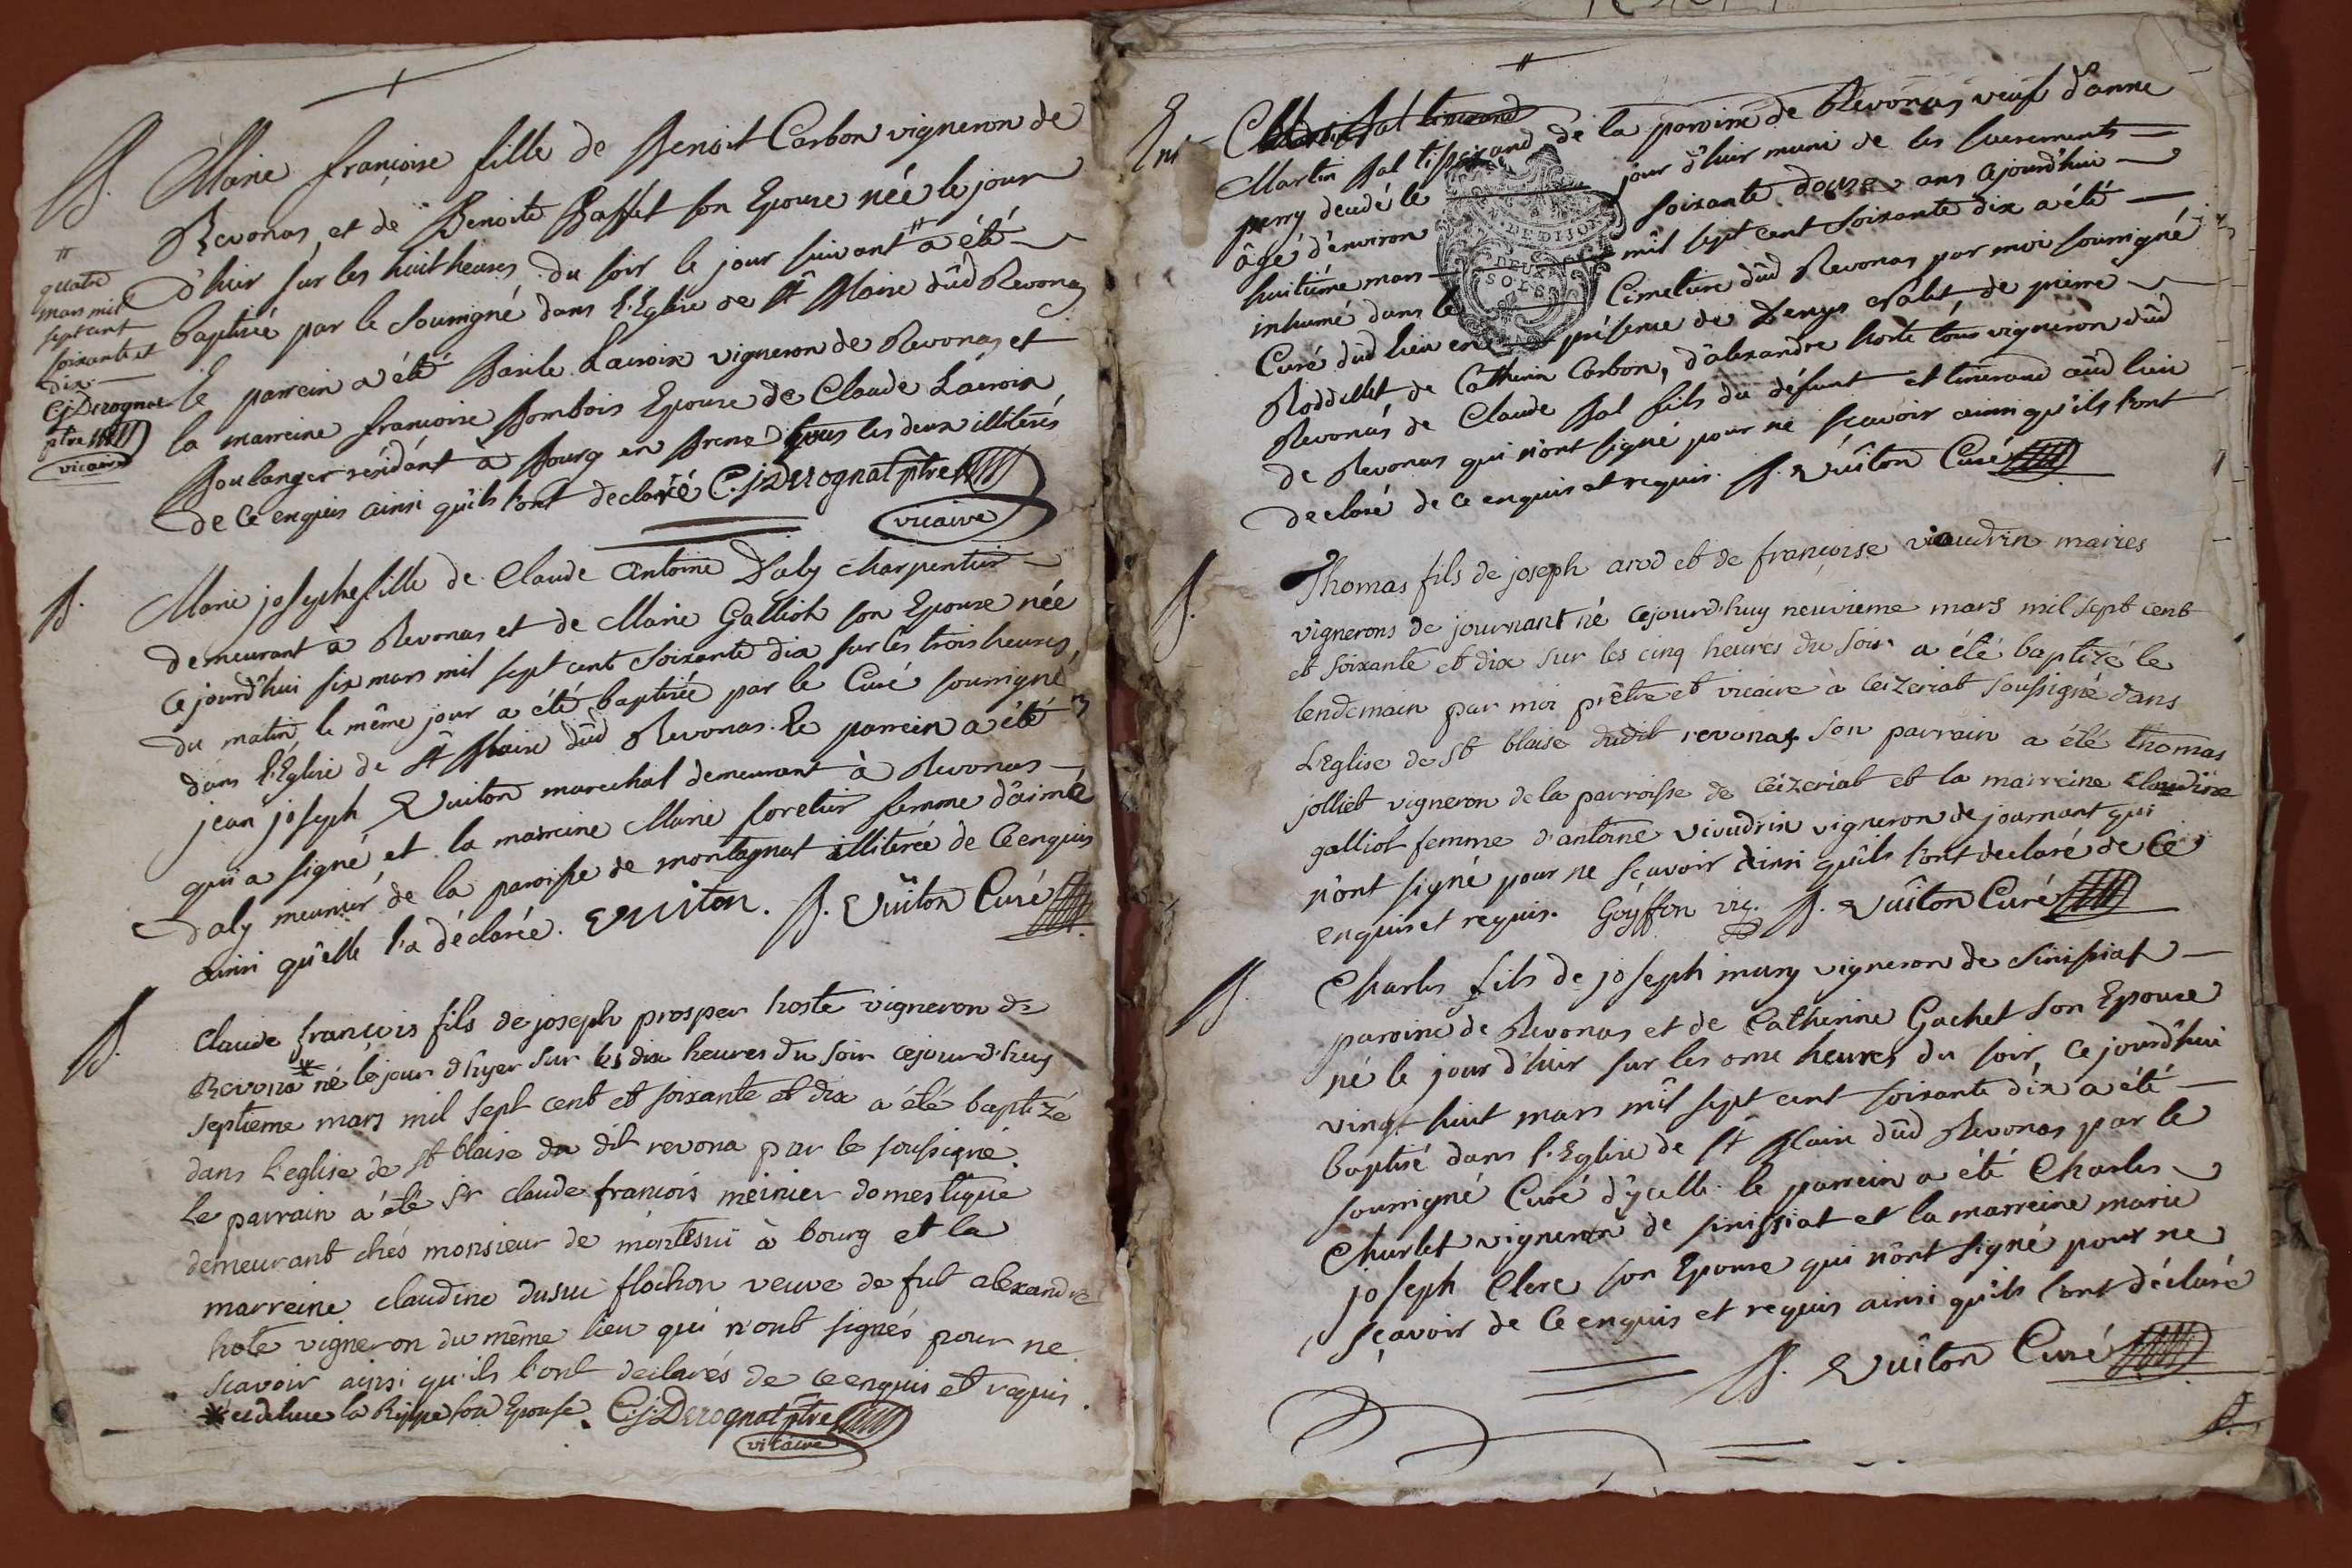 B. Marie francoise fille de Benoit Carbon vigneron de
Revonas, et de Benoite Baffet son Epouse née le jour
d'hier sur les huit heures du soir le jour suivant # a été
baptisée par le soussigné dans l'Eglise de St Blaise dûd Revonas
le parrein a été Basile Lacroix vigneron de Revonas et
la marreine francoise Bombois Epouse de Claude Lacroix
Boulanger residant à Bourg en Bresse tous les deux illiterés
de ce enquis ainsi qu'ils l'ont declaré C.j. Derognat ptre
vicaire
#
quatre
mars mil
sept cent
soixante et
dix.
Cj. Derognat
ptre
vicaire
B. Marie josephe fille de Claude Antoine Daly charpentier
demeurant à Revonas et de Marie Galliot son Epouse née
ce jourd'hui six mars mil sept cent soixante dix sur les trois heures
du matin le même jour a été baptisée par le Curé soussigné
dans l'Eglise de St Blaise dûd Revonas. Le parrein a été
jean joseph Vuiton marechal demeurant à Revonas
qui a signé, et la marreine Marie foretier femme d'aimé
Daly meunier de la paroisse de montagnat illiterée de ce enquis
ainsi qu'elle l'a déclarée. Vuiton. B. Vuiton Curé
B. Claude françois fils de joseph prosper hoste vigneron de
Revona * né le jour d'hyer sur les dix heures du soir cejourd'huy
septieme mars mil sept cent et soixante et dix a été baptizé
dans l'eglise de st blaise du dit revona par le soussigné.
Le parrain a été sr claude francois meinier domestique
demeurant chés monsieur de montesui à bourg et la
marreine claudine dusui flochon veuve de fut alexandre
hote vigneron du même lieu qui n'ont signés pour ne
scavoir ainsi qu'ils l'ont declarés de ce enquis et requis.
* et de luce la Rippe son Epouse. C.j. Derognat ptre
vicaire
#
Ent
Martin Bal tisserand de la paroisse de Revonas veuf d'anne
perry decedé le jour d'hier muni de les sacrements
âgé d'environ soixante douze ans ajourd'hui
huitiéme mars mil sept cent soixante dix a été
inhumé dans le Cimetiere dûd Revonas par moi soussigné
Curé dûd lieu en présence de Denys de pierre
Roddillet de Catherin Carbon, d'alexandre hoste tous vigneron dûd
Revonas de Claude Bal fils du défunt et tisserand aûd lieu
de Revonas qui n'ont signé pour ne scavoir ainsi qu'ils l'ont
declaré de ce enquis et requis. B. Vuiton Curé
DE DIJON
DEUX
SOLS
B. Thomas fils de joseph arod et de françoise viaudrin maries
vignerons de journant né cejourd'huy neuvieme mars mil sept cent
et soixante et dix sur les cinq heures du soir a été baptizé le
lendemain par moi prêtre et vicaire à ceizeriat soussigné dans
L'Eglise de St blaise dudit revonas son parrain a été thomas
jolliet vigneron de la parroisse de ceizeriat et la marreine claudine
galliot femme d'antoine vivudrin vigneron de journant qui
n'ont signé pour ne scavoir ainsi qu'ils l'ont declaré de ce
enquis et requis. Goÿffon vic. B. Vuiton Curé
B. Charles fils de joseph mury vigneron de Sinissiat
paroisse de Revonas et de Catherine Gachet son Epouse
né le jour d'hier sur les onze heures du soir, ce jourd'hui
vingt huit mars mil sept cent soixante dix a été
baptisé dans l'Eglise de St Blaise dûd Revonas par le
soussigné Curé d'ycelle le parrein a été Charles
Charlet vigneron de sinissiat et la marreine marie
joseph Clerc son Epouse qui n'ont signé pour ne
sçavoir de ce enquis et requis ainsi qu'ils l'ont déclaré
B. Vuiton Curé